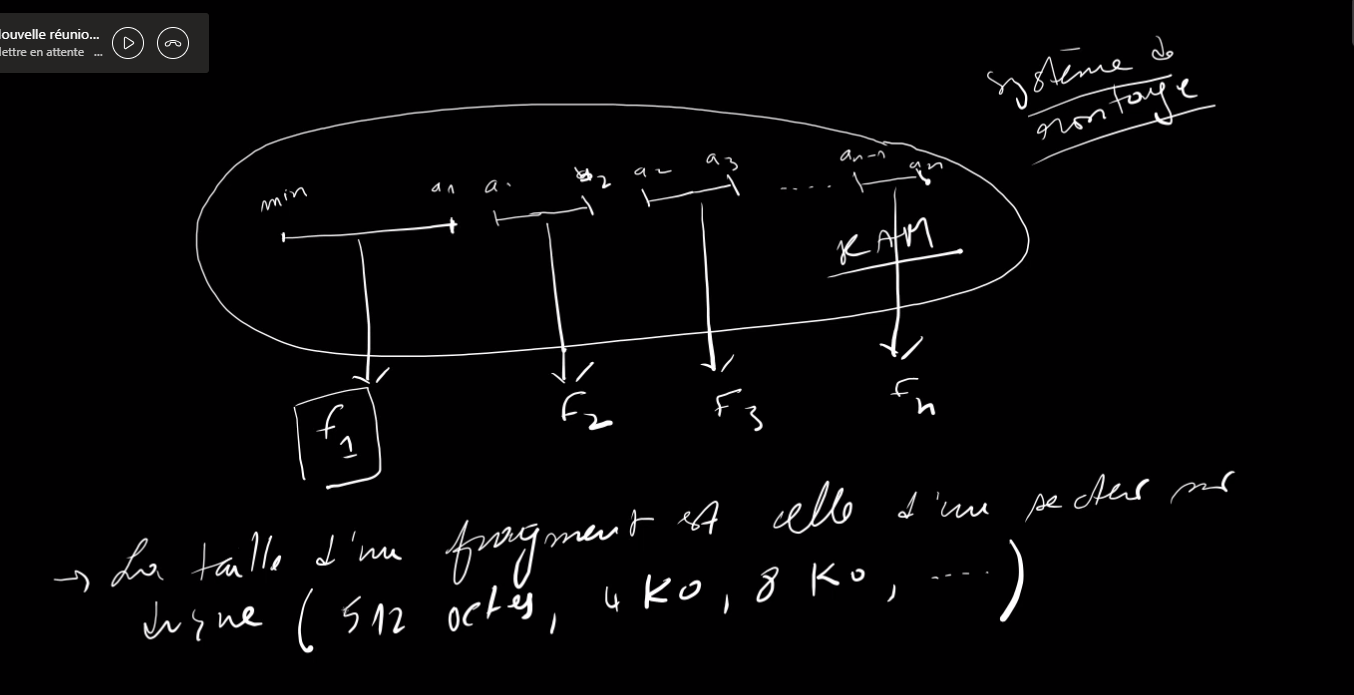 ouvelle réunio...
ettre en attente ...
système de
montage
min a1 a1 a2 a2 a3 .... an-1 an
RAM
f1 F2 F3 fn
→ La taille d'un fragment est celle d'un secteur sur
disque ( 512 octes, 4 Ko, 8 Ko, .... )